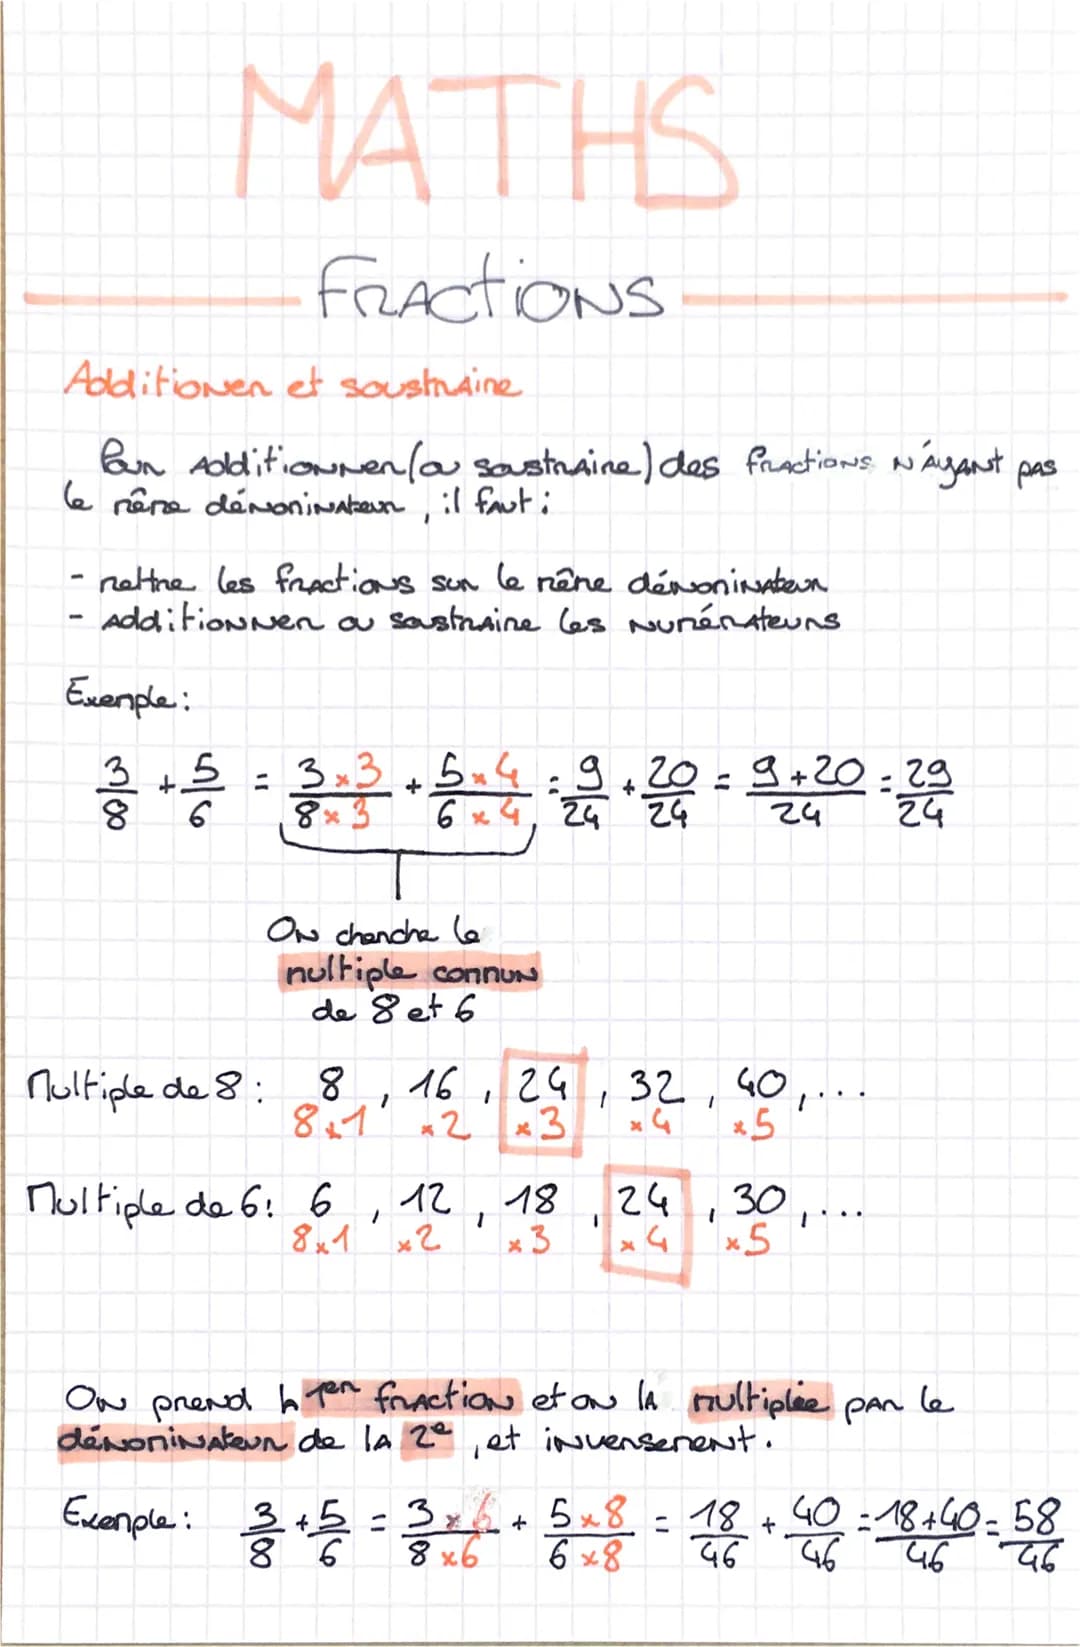 MATHS
FRACTIONS
Additioner et soustraire
Pour additionner (ou soustraire) des fractions n'ayant pas
le même dénominateur, il faut :
- mettre les fractions sur le même dénominateur
- additionner ou soustraire les numérateurs
Exemple :
3/8 + 5/6 = 3×3/8×3 + 5×4/6×4 = 9/24 + 20/24 = 9+20/24 = 29/24
On cherche le
multiple commun
de 8 et 6
Multiple de 8 : 8, 16, 24, 32, 40, ...
8×1 ×2 ×3 ×4 ×5
Multiple de 6 : 6, 12, 18, 24, 30, ...
8×1 ×2 ×3 ×4 ×5
On prend la 1er fraction et on la multiplie par le
dénominateur de la 2e, et inversement.
Exemple : 3/8 + 5/6 = 3×6/8×6 + 5×8/6×8 = 18/46 + 40/46 = 18+40/46 = 58/46